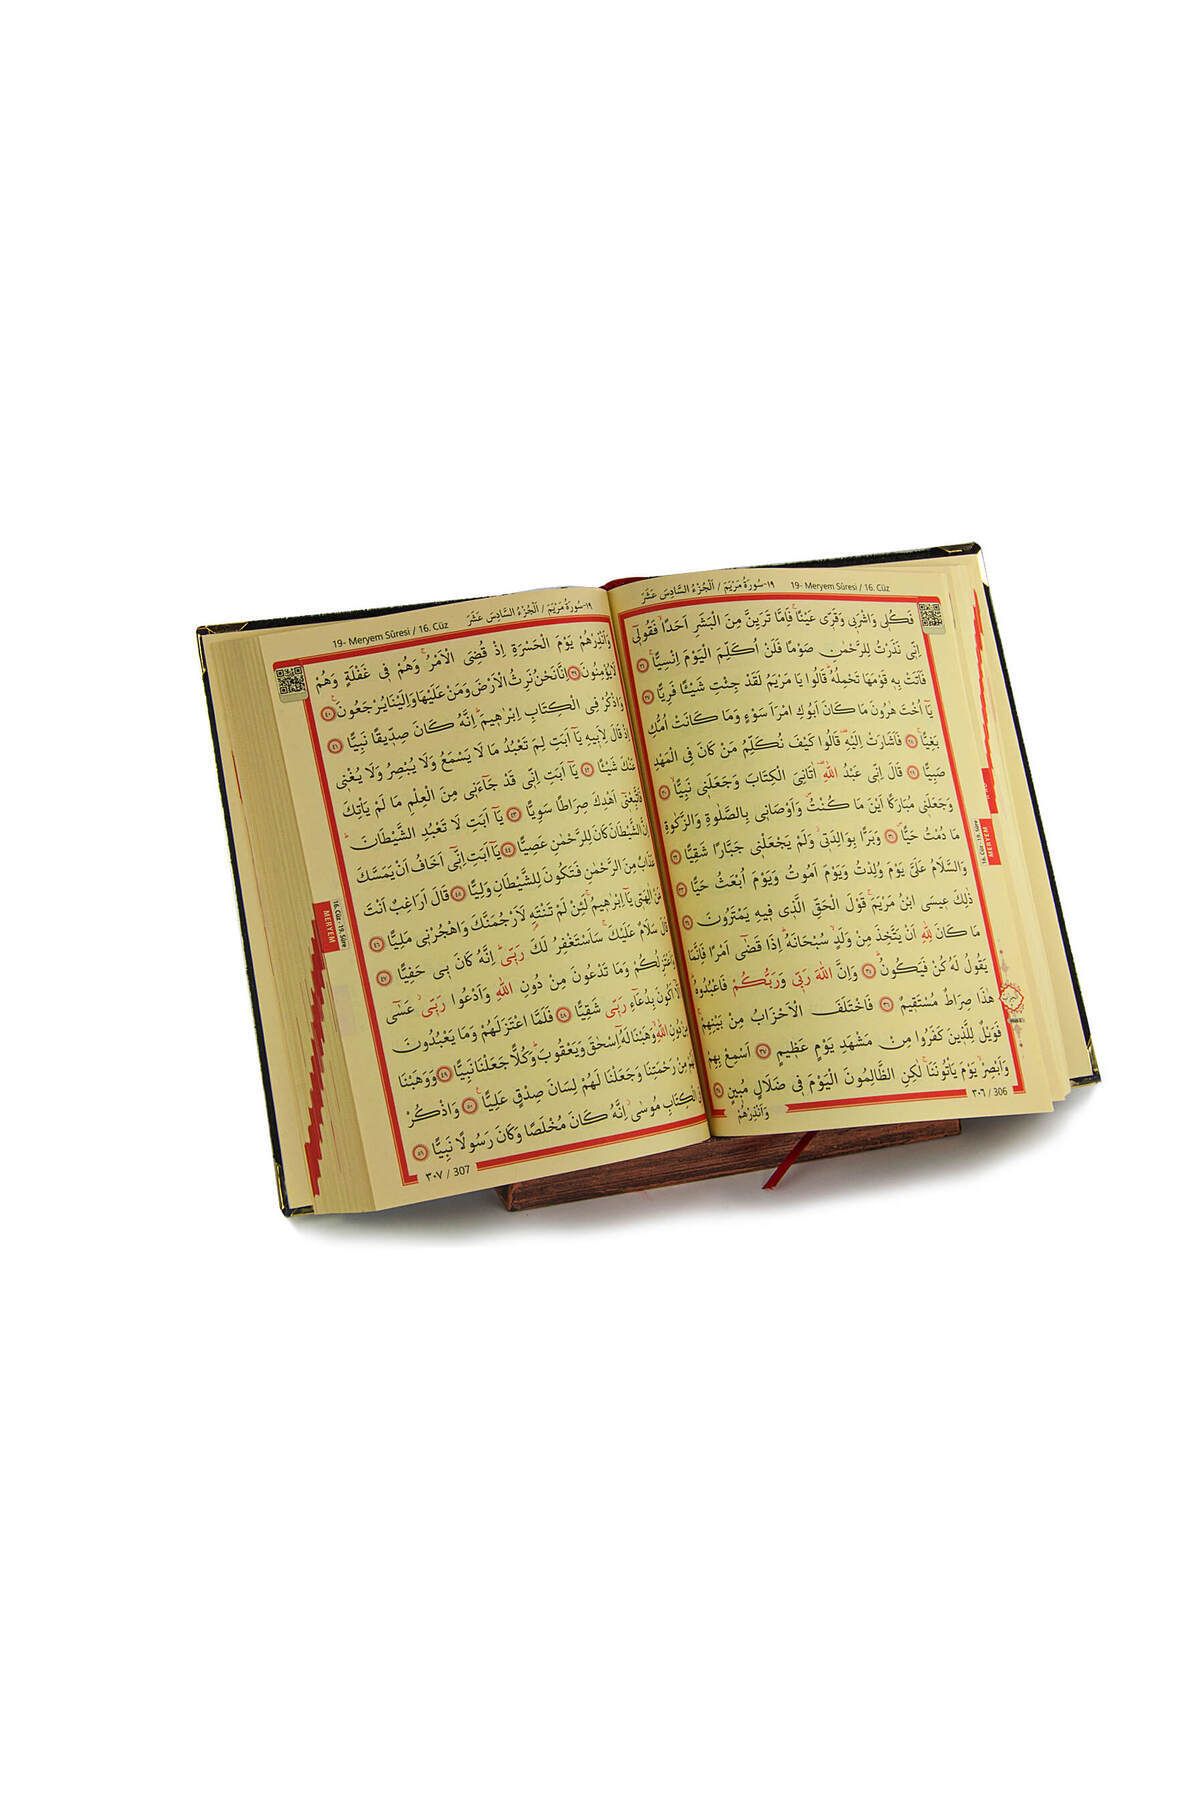 ١٩-سُورَةُ مَرْيَمَ / اَلْجُزْءُ السَّادِسَ عَشَرَ 19- Meryem Sûresi / 16. Cüz
فَكُلٖي وَاشْرَبٖي وَقَرّٖي عَيْنًاۚ فَاِمَّا تَرَيِنَّ مِنَ الْبَشَرِ اَحَدًاۙ فَقُولٖٓي
اِنّٖي نَذَرْتُ لِلرَّحْمٰنِ صَوْمًا فَلَنْ اُكَلِّمَ الْيَوْمَ اِنْسِيًّاۚ ٢٦
فَاَتَتْ بِهٖ قَوْمَهَا تَحْمِلُهُۜ قَالُوا يَا مَرْيَمُ لَقَدْ جِئْتِ شَيْـًٔا فَرِيًّا ٢٧
يَٓا اُخْتَ هٰرُونَ مَا كَانَ اَبُوكِ امْرَاَ سَوْءٍ وَمَا كَانَتْ اُمُّكِ
بَغِيًّاۚ ٢٨ فَاَشَارَتْ اِلَيْهِۜ قَالُوا كَيْفَ نُكَلِّمُ مَنْ كَانَ فِي الْمَهْدِ
صَبِيًّا ٢٩ قَالَ اِنّٖي عَبْدُ اللّٰهِۜ اٰتَانِيَ الْكِتَابَ وَجَعَلَنٖي نَبِيًّاۙ ٣٠
وَجَعَلَنٖي مُبَارَكًا اَيْنَ مَا كُنْتُۖ وَاَوْصَانٖي بِالصَّلٰوةِ وَالزَّكٰوةِ
مَا دُمْتُ حَيًّاۖ ٣١ وَبَرًّا بِوَالِدَتٖيۘ وَلَمْ يَجْعَلْنٖي جَبَّارًا شَقِيًّا ٣٢
وَالسَّلَامُ عَلَيَّ يَوْمَ وُلِدْتُ وَيَوْمَ اَمُوتُ وَيَوْمَ اُبْعَثُ حَيًّا ٣٣
ذٰلِكَ عٖيسَى ابْنُ مَرْيَمَۚ قَوْلَ الْحَقِّ الَّذٖي فٖيهِ يَمْتَرُونَ ٣٤
مَا كَانَ لِلّٰهِ اَنْ يَتَّخِذَ مِنْ وَلَدٍۙ سُبْحَانَهُۜ اِذَا قَضٰٓى اَمْرًا فَاِنَّمَا
يَقُولُ لَهُ كُنْ فَيَكُونُۜ ٣٥ وَاِنَّ اللّٰهَ رَبّٖي وَرَبُّكُمْ فَاعْبُدُوهُۜ
هٰذَا صِرَاطٌ مُسْتَقٖيمٌ ٣٦ فَاخْتَلَفَ الْاَحْزَابُ مِنْ بَيْنِهِمْۚ
فَوَيْلٌ لِلَّذٖينَ كَفَرُوا مِنْ مَشْهَدِ يَوْمٍ عَظٖيمٍ ٣٧ اَسْمِعْ بِهِمْ
وَاَبْصِرْۙ يَوْمَ يَأْتُونَنَا لٰكِنِ الظَّالِمُونَ الْيَوْمَ فٖي ضَلَالٍ مُبٖينٍ ٣٨
وَاَنْذِرْهُمْ
٣٠٦ / 306
16. Cüz - 19. Sûre
MERYEM
١٩-سُورَةُ مَرْيَمَ / اَلْجُزْءُ السَّادِسَ عَشَرَ 19- Meryem Sûresi / 16. Cüz
وَاَنْذِرْهُمْ يَوْمَ الْحَسْرَةِ اِذْ قُضِيَ الْاَمْرُۢ وَهُمْ فٖي غَفْلَةٍ وَهُمْ
لَا يُؤْمِنُونَ ٣٩ اِنَّا نَحْنُ نَرِثُ الْاَرْضَ وَمَنْ عَلَيْهَا وَاِلَيْنَا يُرْجَعُونَ۟ ٤٠
وَاذْكُرْ فِي الْكِتَابِ اِبْرٰهٖيمَۜ اِنَّهُ كَانَ صِدّٖيقًا نَبِيًّا ٤١
اِذْ قَالَ لِاَبٖيهِ يَٓا اَبَتِ لِمَ تَعْبُدُ مَا لَا يَسْمَعُ وَلَا يُبْصِرُ وَلَا يُغْنٖي
عَنْكَ شَيْـًٔا ٤٢ يَٓا اَبَتِ اِنّٖي قَدْ جَٓاءَنٖي مِنَ الْعِلْمِ مَا لَمْ يَأْتِكَ
فَاتَّبِعْنٖٓي اَهْدِكَ صِرَاطًا سَوِيًّا ٤٣ يَٓا اَبَتِ لَا تَعْبُدِ الشَّيْطَانَۜ
اِنَّ الشَّيْطَانَ كَانَ لِلرَّحْمٰنِ عَصِيًّا ٤٤ يَٓا اَبَتِ اِنّٖٓي اَخَافُ اَنْ يَمَسَّكَ
عَذَابٌ مِنَ الرَّحْمٰنِ فَتَكُونَ لِلشَّيْطَانِ وَلِيًّا ٤٥ قَالَ اَرَاغِبٌ اَنْتَ
عَنْ اٰلِهَتٖي يَٓا اِبْرٰهٖيمُۚ لَئِنْ لَمْ تَنْتَهِ لَاَرْجُمَنَّكَ وَاهْجُرْنٖي مَلِيًّا ٤٦
قَالَ سَلَامٌ عَلَيْكَۚ سَاَسْتَغْفِرُ لَكَ رَبّٖيۜ اِنَّهُ كَانَ بٖي حَفِيًّا ٤٧
وَاَعْتَزِلُكُمْ وَمَا تَدْعُونَ مِنْ دُونِ اللّٰهِ وَاَدْعُوا رَبّٖيۘ عَسٰٓى
اَلَّٓا اَكُونَ بِدُعَٓاءِ رَبّٖي شَقِيًّا ٤٨ فَلَمَّا اعْتَزَلَهُمْ وَمَا يَعْبُدُونَ
مِنْ دُونِ اللّٰهِۙ وَهَبْنَا لَهُٓ اِسْحٰقَ وَيَعْقُوبَۜ وَكُلًّا جَعَلْنَا نَبِيًّا ٤٩ وَوَهَبْنَا
لَهُمْ مِنْ رَحْمَتِنَا وَجَعَلْنَا لَهُمْ لِسَانَ صِدْقٍ عَلِيًّا۟ ٥٠ وَاذْكُرْ
فِي الْكِتَابِ مُوسٰىۘ اِنَّهُ كَانَ مُخْلَصًا وَكَانَ رَسُولًا نَبِيًّا ٥١
٣٠٧ / 307
16. Cüz - 19. Sûre
MERYEM